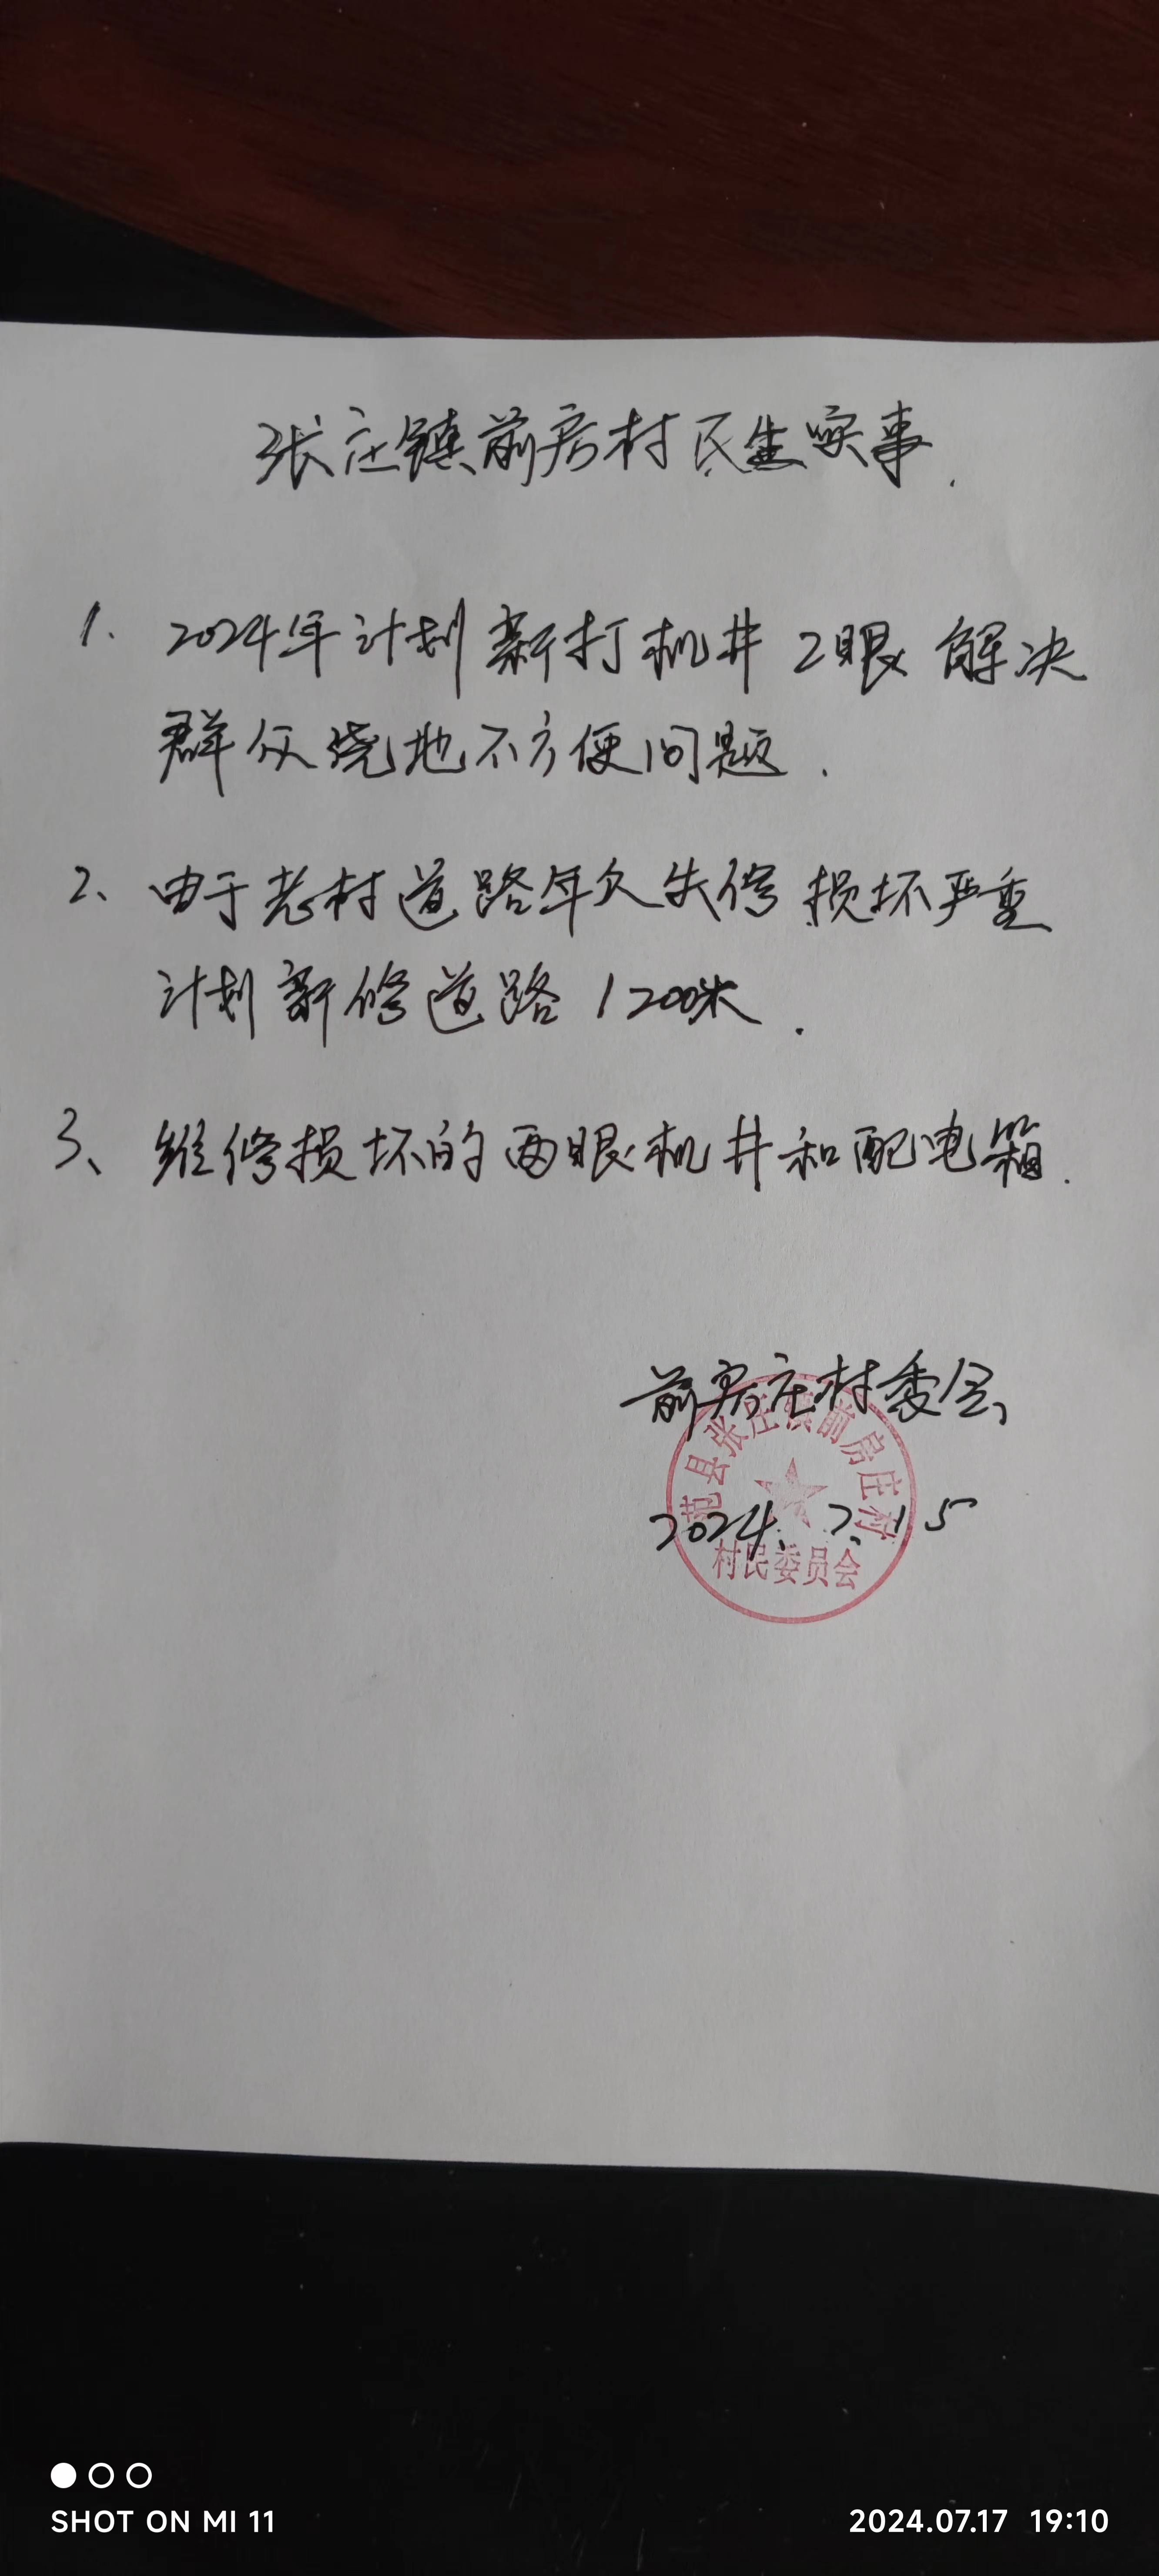 张庄镇前房村民生实事.
1. 2024年计划新打机井2眼 解决
群众浇地不方便问题.
2、由于老村道路年久失修 损坏严重
计划新修道路1200米.
3、维修损坏的两眼机井和配电箱.
前房庄村委会
范县张庄镇前房庄村
2024.7.15
村民委员会
SHOT ON MI 11
2024.07.17 19:10